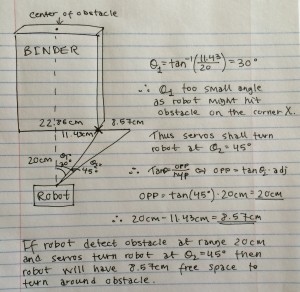 center of obstacle
BINDER
22.86cm
11.43cm
8.57cm
20cm
θ₁
30°
θ₂
45°
Robot
θ₁ = tan⁻¹(11.43/20) = 30°
∴ θ₁ too small angle
as robot might hit
obstacle on the corner X.
Thus servos shall turn
robot at θ₂ = 45°
OPP = tanθ₂ · adj
OPP = tan(45°) · 20cm = 20cm
∴ 20cm - 11.43cm = 8.57cm
If robot detect obstacle at range 20cm
and servos turn robot at θ₂ = 45° then
robot will have 8.57cm free space to
turn around obstacle.